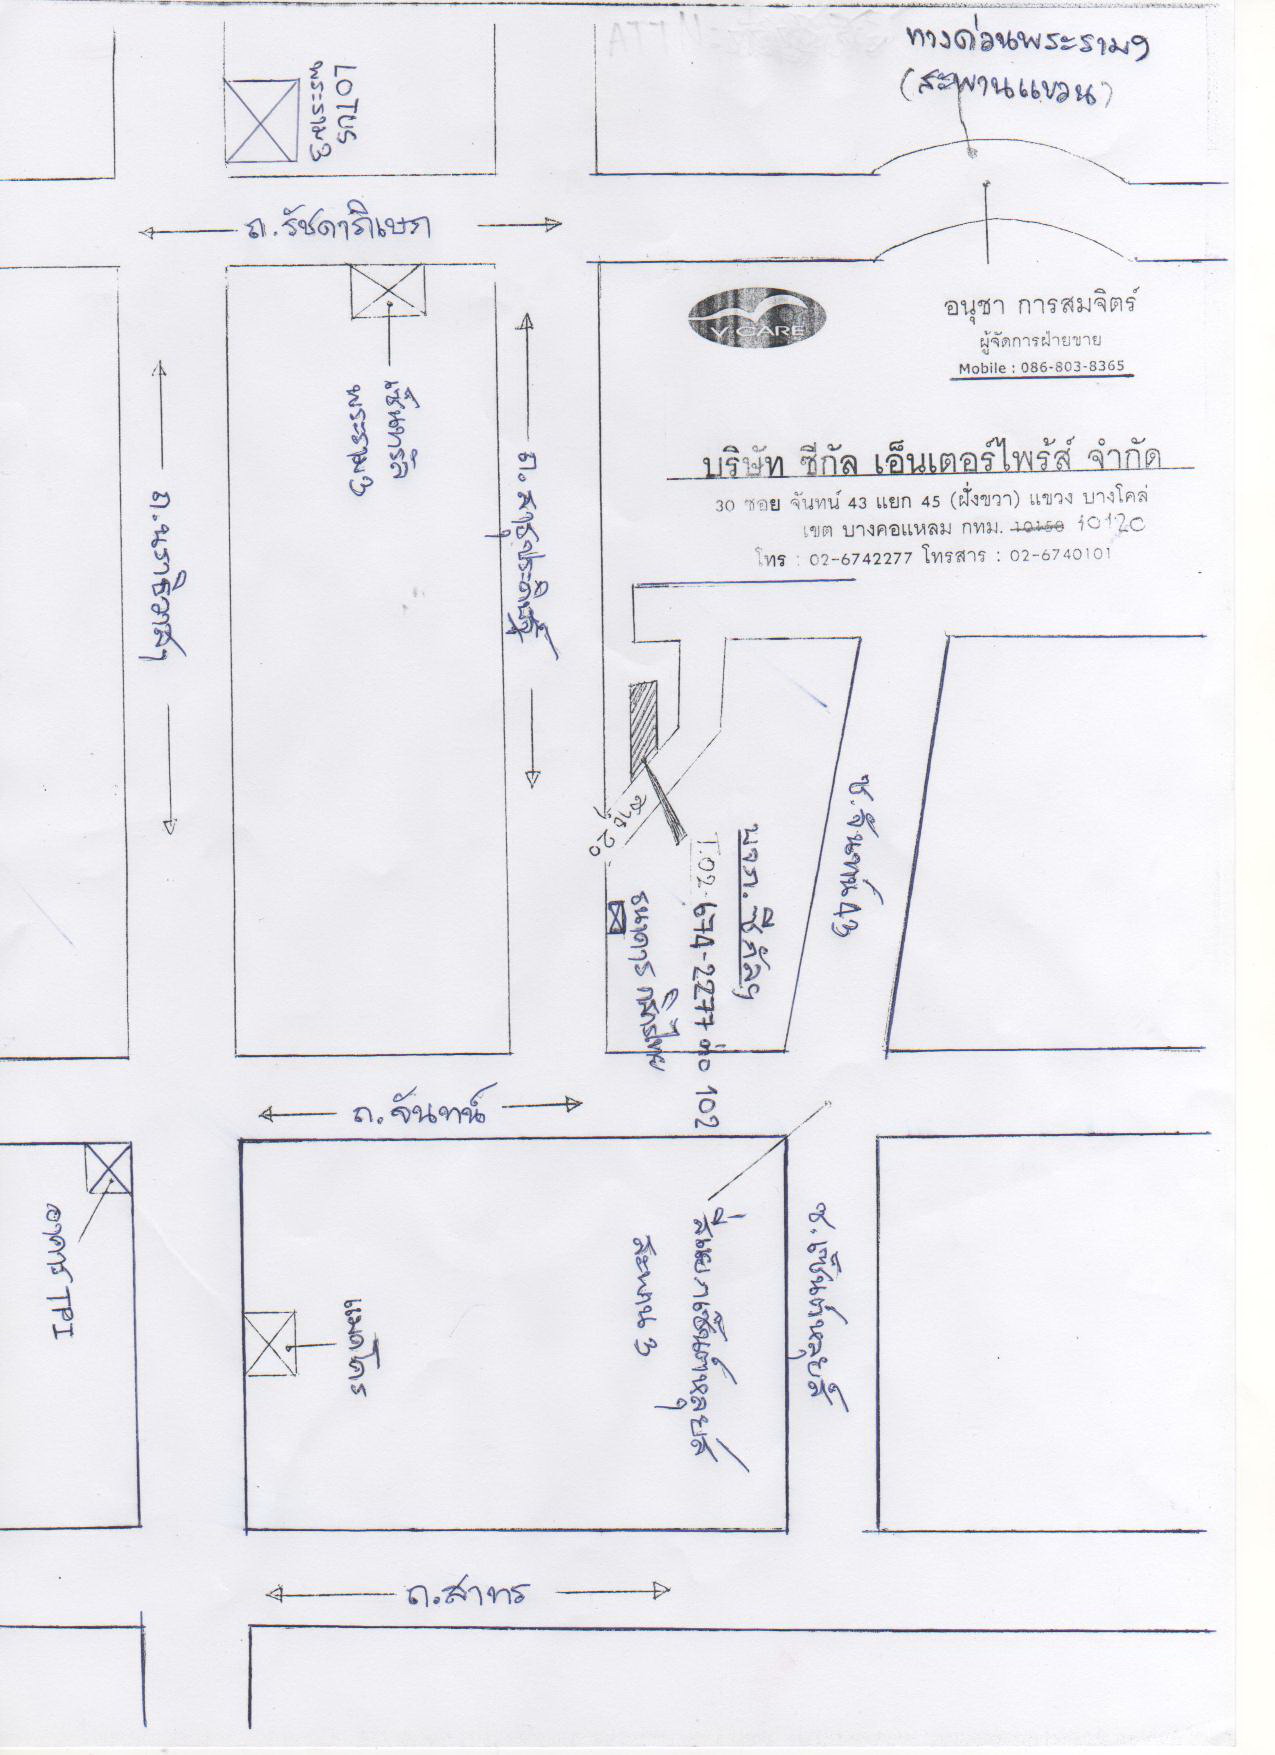 ทางด่วนพระราม 9
(สะพานแขวน)
LOTUS
พระราม 3
ถ.รัชดาภิเษก
V.CARE
อนุชา การสมจิตร์
ผู้จัดการฝ่ายขาย
Mobile : 086-803-8365
เซ็นทรัล
พระราม 3
บริษัท ซีกัล เอ็นเตอร์ไพร้ส์ จำกัด
30 ซอย จันทน์ 43 แยก 45 (ฝั่งขวา) แขวง บางโคล่
เขต บางคอแหลม กทม. 10150 10120
โทร : 02-6742277 โทรสาร : 02-6740101
ถ.นราธิวาสฯ
ถ.สาธุประดิษฐ์
สาธุ 20
ซ.จันทน์ 43
บจก.ซีกัลฯ
T.02-674-2277 ต่อ 102
ธนาคารกสิกรไทย
ถ.จันทน์
อาคาร TPI
แมคโคร
สี่แยกเซ็นต์หลุยส์
สะพาน 3
ซ.เซ็นต์หลุยส์
ถ.สาทร